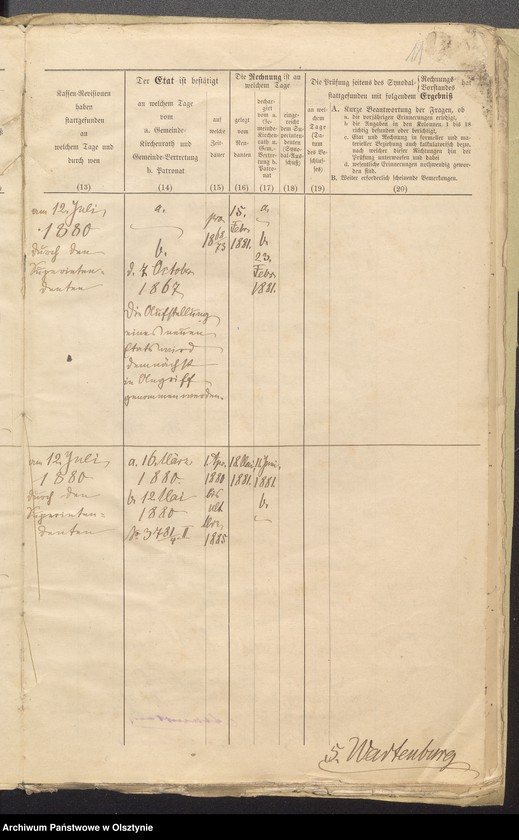 11
Kassen-Revisionen
haben
stattgefunden
an
welchem Tage und
durch wen
(13)
Der Etat ist bestätigt
an welchem Tage
vom
a. Gemeinde-
Kirchenrath und
Gemeinde-Vertretung
b. Patronat
(14)
auf
welche
Zeit-
dauer
(15)
Die Rechnung ist an
welchem Tage
gelegt
vom
Ren-
danten
(16)
dechar-
girt
vom a.
Ge-
meinde-
Kirchen-
rath u.
Gem.-
Vertre-
tung b.
Patro-
nat
(17)
einge-
reicht
dem Sy-
perinten-
denten
(Syno-
dal-Aus-
schuß)
(18)
Die Prüfung seitens des Synodal- Rechnungs-Vorstandes hat
stattgefunden mit folgendem Ergebniß
an wel-
chem
Tage
(Da-
tum
des Be-
schlus-
ses)
(19)
A. Kurze Beantwortung der Fragen, ob
a. die vorjährigen Erinnerungen erledigt,
b. die Angaben in den Kolonnen 4 bis 18
richtig befunden oder berichtigt,
c. Etat und Rechnung in formeller und ma-
terieller Beziehung auch kalkulatorisch bezw.
nach welcher dieser Richtungen hin der
Prüfung unterworfen und dabei
d. wesentliche Erinnerungen nothwendig gewor-
den sind.
B. Weiter erforderlich scheinende Bemerkungen.
(20)
am 12. Juli
1880
durch den
Superinten-
denten
a.
b.
d. 7. October
1867
Die Aufstellung
eines neuen
Etats wird
demnächst
in Angriff
genommen werden.
pro
1868/73
15.
Febr.
1881.
a.
b.
23.
Febr.
1881.
am 12. Juli
1880
durch den
Superinten-
denten
a. 16. März
1880
b. 12 Mai
1880
1. Apr.
1880
bis
ult
März
1885
18. Mai
1881.
11. Juni
1881.
b.
5. Wartenburg
Archiwum Państwowe w Olsztynie